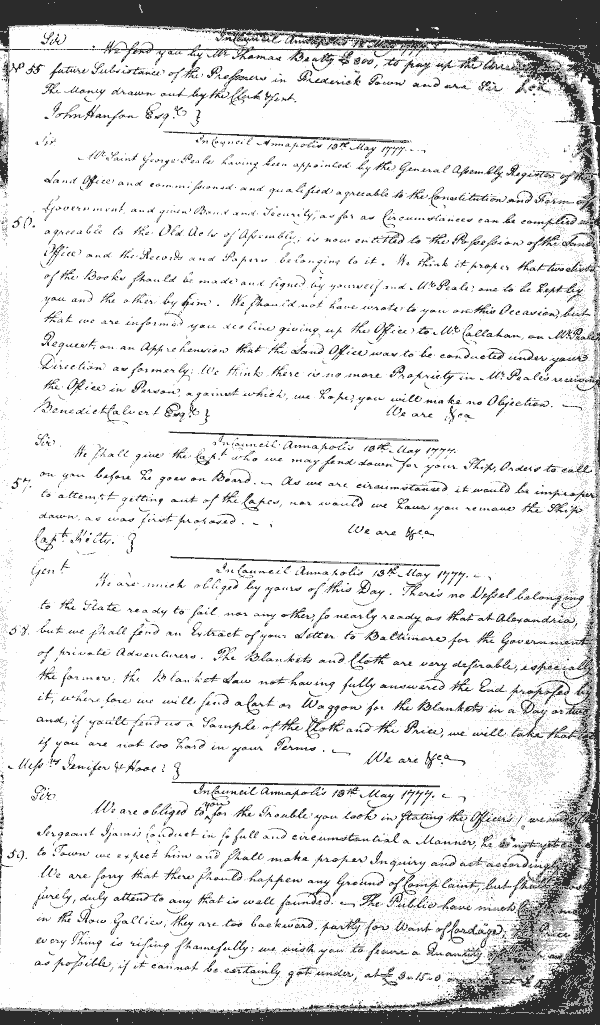 Sir In Council Annapolis 13 May 1777.
We send you by Mr Thomas Beatty £300, to pay up the
No 55 future Subsistance of the Prisoners in Frederick Town and are Sir
The Money drawn out by the Clerk
John Hanson Esqr }
In Council Annapolis 13th May 1777.
Sir
Mr Saint George Peale having been appointed by the General Assembly Register of the
Land Office and commissioned and qualified agreable to the Constitution and Form of
Government, and given Bond and Security, as far as Circumstances can be complied with
56. agreable to the Old Acts of Assembly, is now entitled to the Possession of the Land
Office and the Records and Papers belonging to it. We think it proper that two Lists
of the Books should be made and signed by yourself and Mr Peale; one to be kept by
you and the other by him. We should not have wrote to you on this Occasion, but
that we are informed you decline giving up the Office to Mr Callahan, on Mr Peale's
Request, on an Apprehension that the Land Office was to be conducted under your
Direction as formerly: We think there is no more Propriety in Mr Peale's receiving
the Office in Person, against which, we hope, you will make no Objection.
Benedict Calvert Esqr } We are &ca
In Council Annapolis 13th May 1777.
Sir
We shall give the Capt. who we may send down for your Ship, Orders to call
on you before he goes on Board. As we are circumstanced it would be improper
57. to attempt getting out of the Capes, nor would we have you remove the Ship
down, as was first proposed. We are &ca
Capt. Kelty. }
In Council Annapolis 13th May 1777.
Gent
We are much obliged by yours of this Day. There's no Vessel belonging
to the State ready to sail nor any other, so nearly ready as that at Alexandria,
58. but we shall send an Extract of your Letter to Baltimore for the Government
of private Adventurers. The Blankets and Cloth are very desirable, especially
the former; the Blanket Law not having fully answered the End proposed by
it, wherefore we will send a Cart or Waggon for the Blankets in a Day or two
and, if you'll send us a Sample of the Cloth and the Price, we will take that
if you are not too hard in your Terms. We are &ca
Messrs Jenifer & Hooe: }
In Council Annapolis 13th May 1777.
Sir
We are obliged to you for the Trouble you took in stating the Officers,
Sergeant Conduct in so full and circumstantial a Manner, he is not yet
59. to Town we expect him and shall make proper Inquiry and act accordingly
We are sorry that there should happen any Ground of Complaint, but shall
surely, duly attend to any that is well founded. The Public have much
in the Row Gallies, they are too backward, partly for Want of Cordage, the Price
every Thing is rising shamefully: we wish you to secure a Quantity
as possible, if it cannot be certainly got under, at £3-15-0